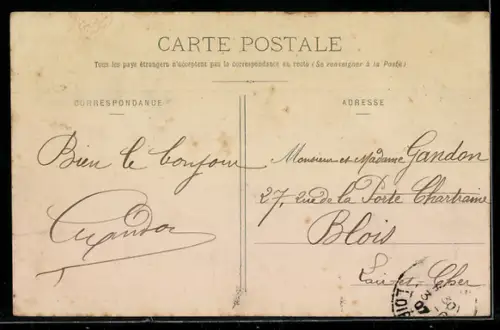 CARTE POSTALE
Tous les pays étrangers n'acceptent pas la correspondance au recto (Se renseigner à la Poste)
CORRESPONDANCE
Bien le bonjour
ADRESSE
Monsieur et Madame Gandon
27, rue de la Porte Chartraine
Blois
Loir-et-Cher